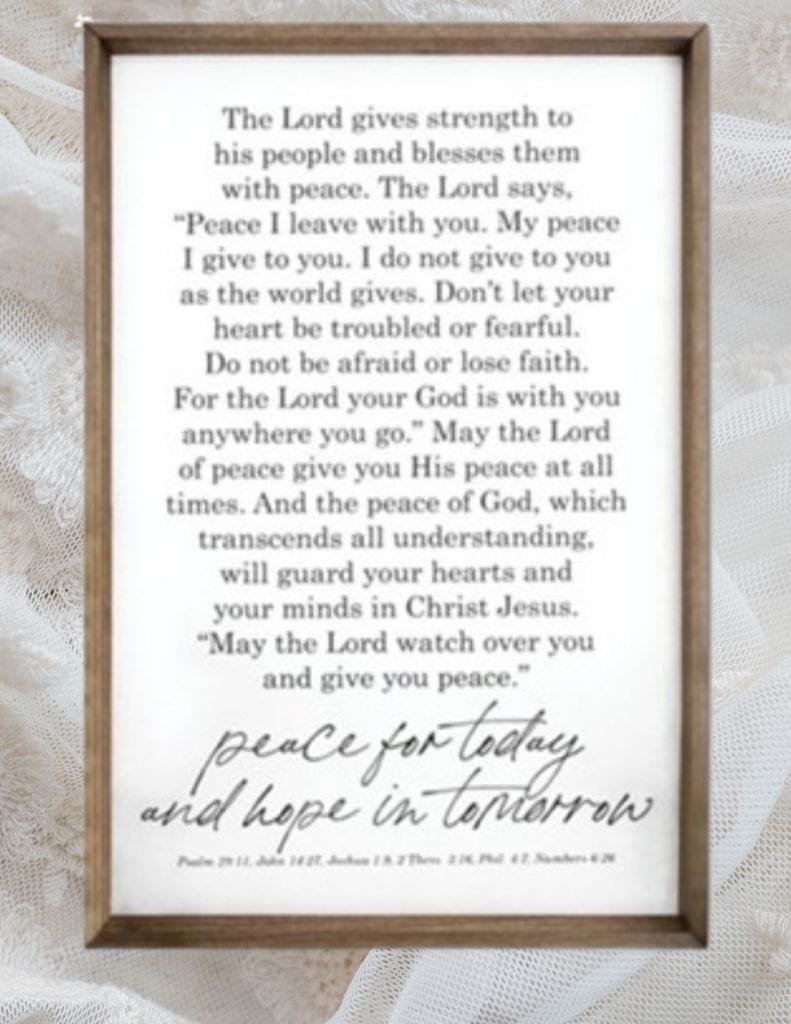 The Lord gives strength to
his people and blesses them
with peace. The Lord says,
“Peace I leave with you. My peace
I give to you. I do not give to you
as the world gives. Don’t let your
heart be troubled or fearful.
Do not be afraid or lose faith.
For the Lord your God is with you
anywhere you go.” May the Lord
of peace give you His peace at all
times. And the peace of God, which
transcends all understanding,
will guard your hearts and
your minds in Christ Jesus.
“May the Lord watch over you
and give you peace.”
peace for today
and hope in tomorrow
Psalm 29:11, John 14:27, Joshua 1:9, 2 Thess. 3:16, Phil. 4:7, Numbers 6:26